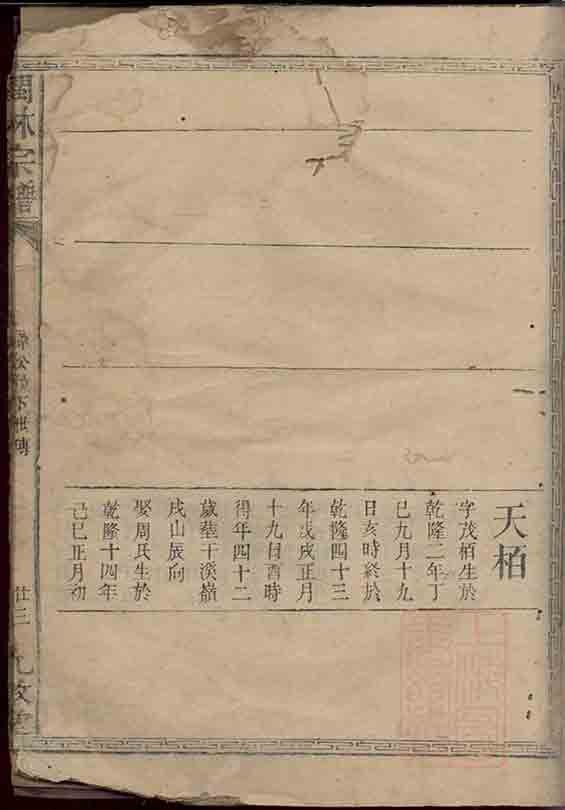 天栢
字茂栢生於
乾隆二年丁
巳九月十九
日亥時終於
乾隆四十三
年戊戌正月
十九日酉時
得年四十二
歲塟于溪嶺
戌山辰向
娶周氏生於
乾隆十四年
己巳正月初
閩林宗譜
廿三